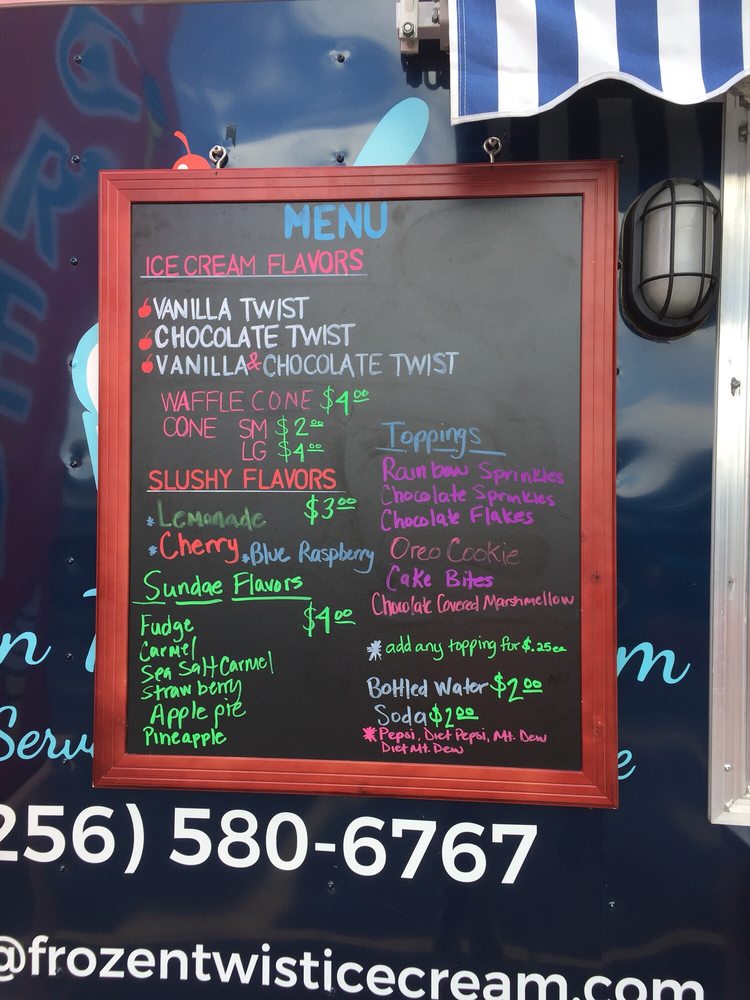 MENU
ICE CREAM FLAVORS
VANILLA TWIST
CHOCOLATE TWIST
VANILLA & CHOCOLATE TWIST
WAFFLE CONE $4.00
CONE SM $2.00
LG $4.00
SLUSHY FLAVORS
$3.00
*Lemonade
*Cherry *Blue Raspberry
Sundae Flavors
$4.00
Fudge
Carmel
Sea Salt Carmel
Strawberry
Apple pie
Pineapple
Toppings
Rainbow Sprinkles
Chocolate Sprinkles
Chocolate Flakes
Oreo Cookie
Cake Bites
Chocolate Covered Marshmellow
*add any topping for $.25 ea
Bottled Water $2.00
Soda $2.00
*Pepsi, Diet Pepsi, Mt. Dew
Diet Mt. Dew
256) 580-6767
@frozentwisticecream.com